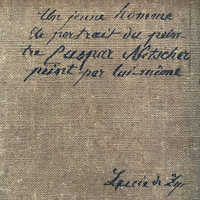 Un jeune homme
le portrait du pein-
tre Caspar Nitscher
peint par lui-même